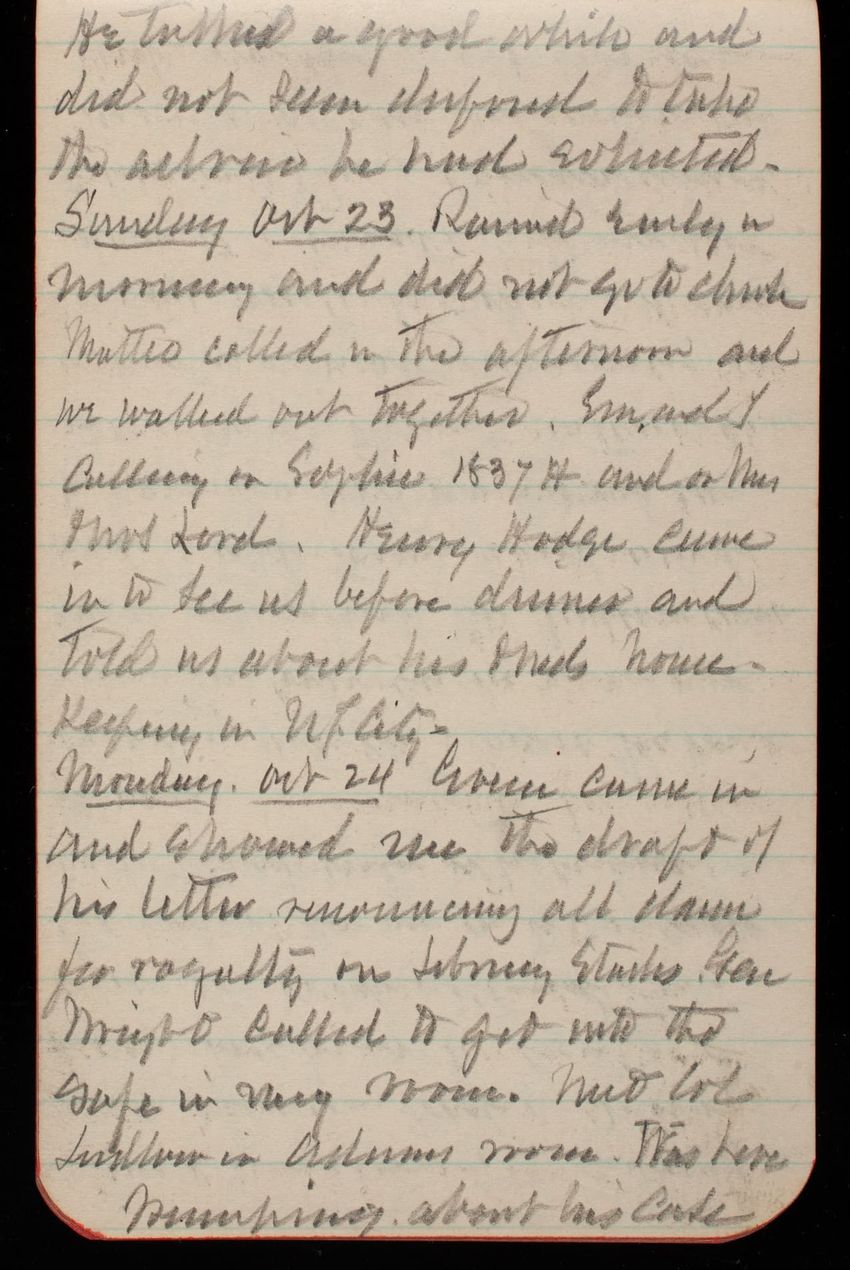 He talked a good while and
did not seem disposed to take
the advice he had solicited.
Sunday Oct 23. Rained early in
morning and did not go to church
Mattes called in the afternoon and
we walked out together. Em, and I
calling on Sophie 1837 H and on Mrs
Thos Lord. Henry Hodge came
in to see us before dinner and
told us about his & Neds house-
keeping in N.Y. City-
Monday. Oct 24 Green came in
and showed me the draft of
his letter renouncing all claim
for royalty on Library Stacks. Gen
Wright called to get into the
safe in my room. Met Col
Ludlow in Adams room. Was here
about his case